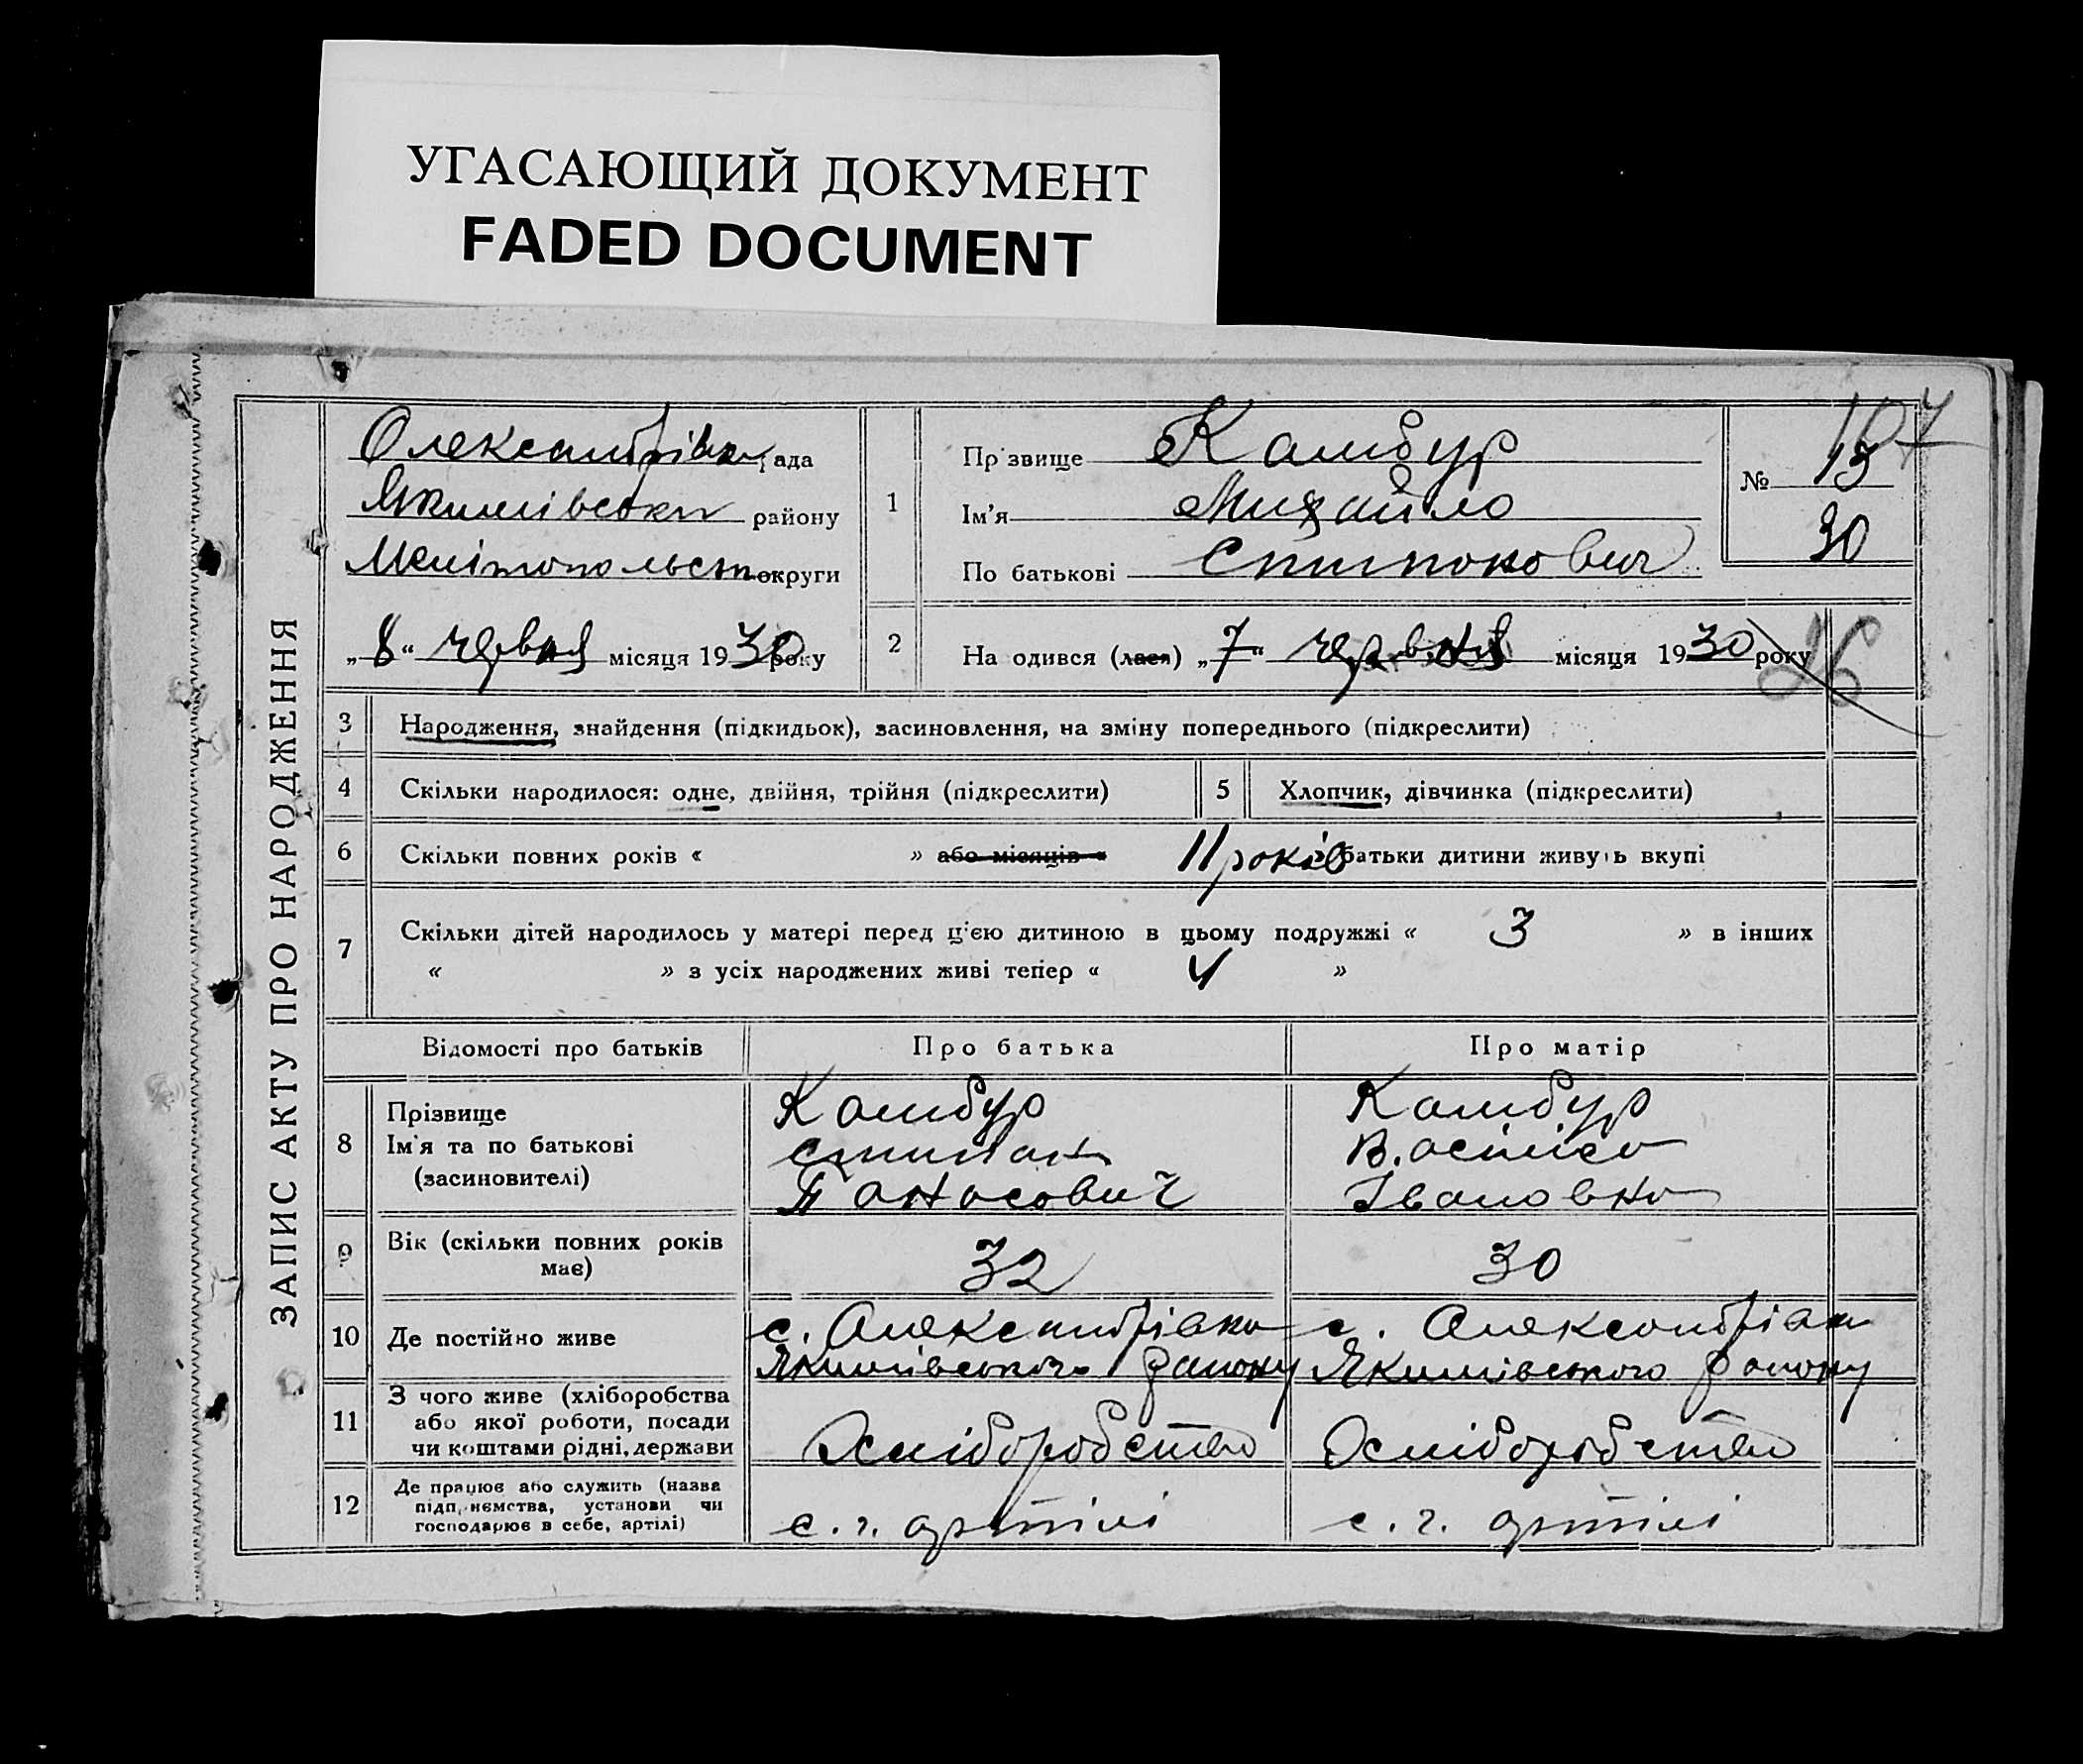 УГАСАЮЩИЙ ДОКУМЕНТ
FADED DOCUMENT
ЗАПИС АКТУ ПРО НАРОДЖЕННЯ
Олександрівка рада
Якимівськи району
Мелітопольст округи
„8“ червня місяця 1930 року
1
Прізвище Камбур
Ім'я Михайло
По батькові Степанович
107
№ 13
30
2
На одився (лася) „7“ червня місяця 1930 року
26
3 Народження, знайдення (підкидьок), засиновлення, на зміну попереднього (підкреслити)
4 Скільки народилося: одне, двійня, трійня (підкреслити)
5 Хлопчик, дівчинка (підкреслити)
6 Скільки повних років « » або місяців « 11 років батьки дитини живуть вкупі
7 Скільки дітей народилось у матері перед цією дитиною в цьому подружжі « 3 » в інших
« » з усіх народжених живі тепер « 4 »
Відомості про батьків Про батька Про матір
8
Прізвище Камбур Камбур
Ім'я та по батькові
(засиновителі)
Панасович Івановна
9 Вік (скільки повних років
має) 32 30
10 Де постійно живе
с. Олександрівка с. Олександрівка
Якимівського району Якимівського району
11
З чого живе (хліборобства
або якої роботи, посади
чи коштами рідні, держави
Хліборобство Хліборобство
12
Де працює або служить (назва
підприємства, установи чи
господарює в себе, артілі)
с. г. артілі с. г. артілі